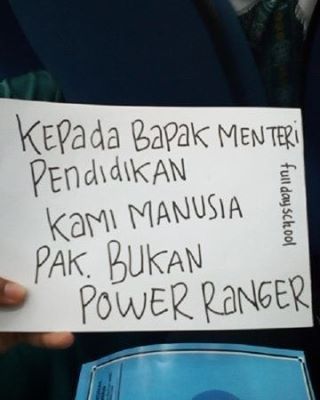 KEPADA BAPAK MENTERI
PENDIDIKAN
KAMI MANUSIA
PAK. BUKAN
POWER RANGER
full day school